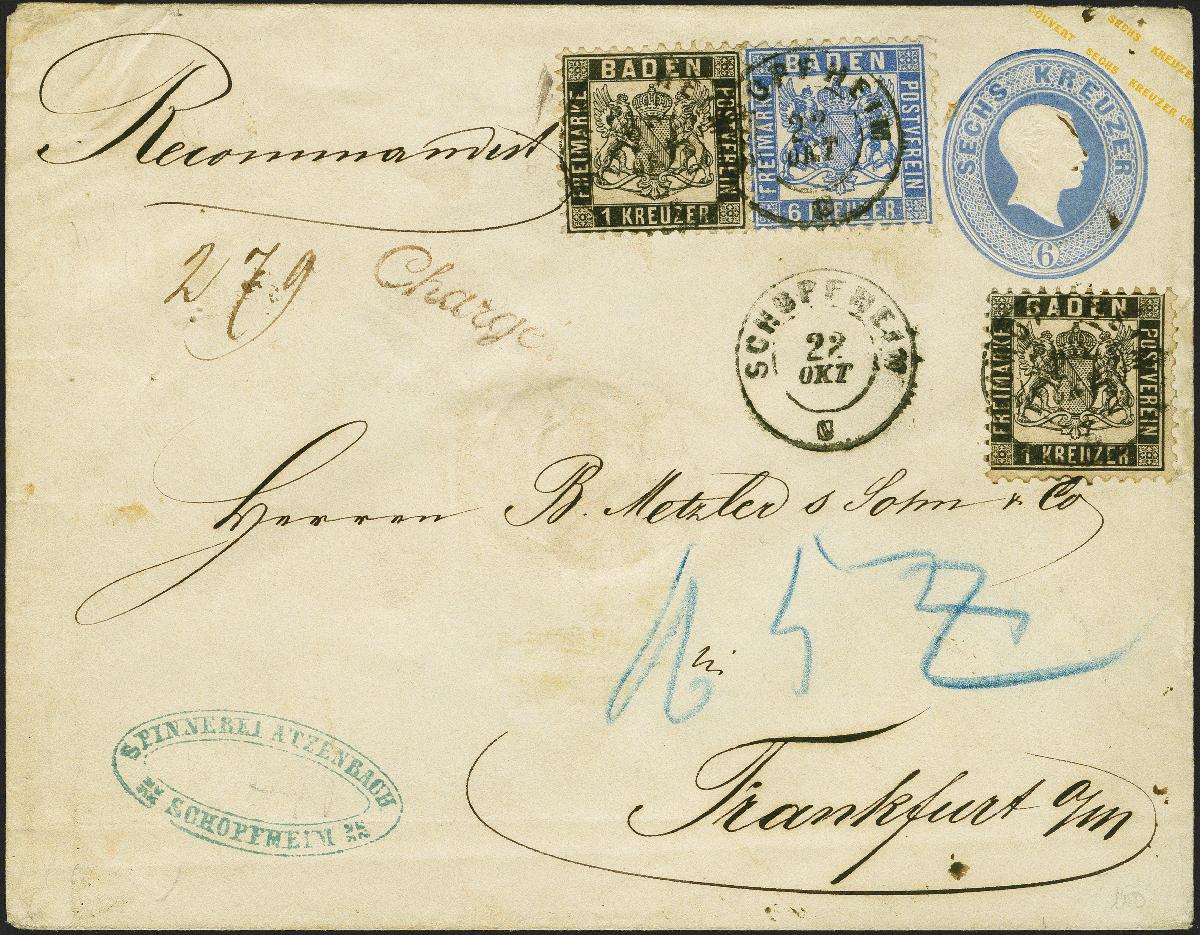 COUVERT SECHS KREUZER
SECHS KREUZER
Recommandirt
BADEN
FREIMARKE
POSTVEREIN
1 KREUZER
BADEN
FREIMARKE
POSTVEREIN
6 KREUZER
OPFHEIM
22
OKT
SECHS KREUZER
6
279
Chargé.
SCHOPFHEIM
22
OKT
BADEN
FREIMARKE
POSTVEREIN
1 KREUZER
Herren B. Metzler s Sohn & Co
in
Frankfurt a/m
SPINNEREI ATZENBACH
SCHOPFHEIM